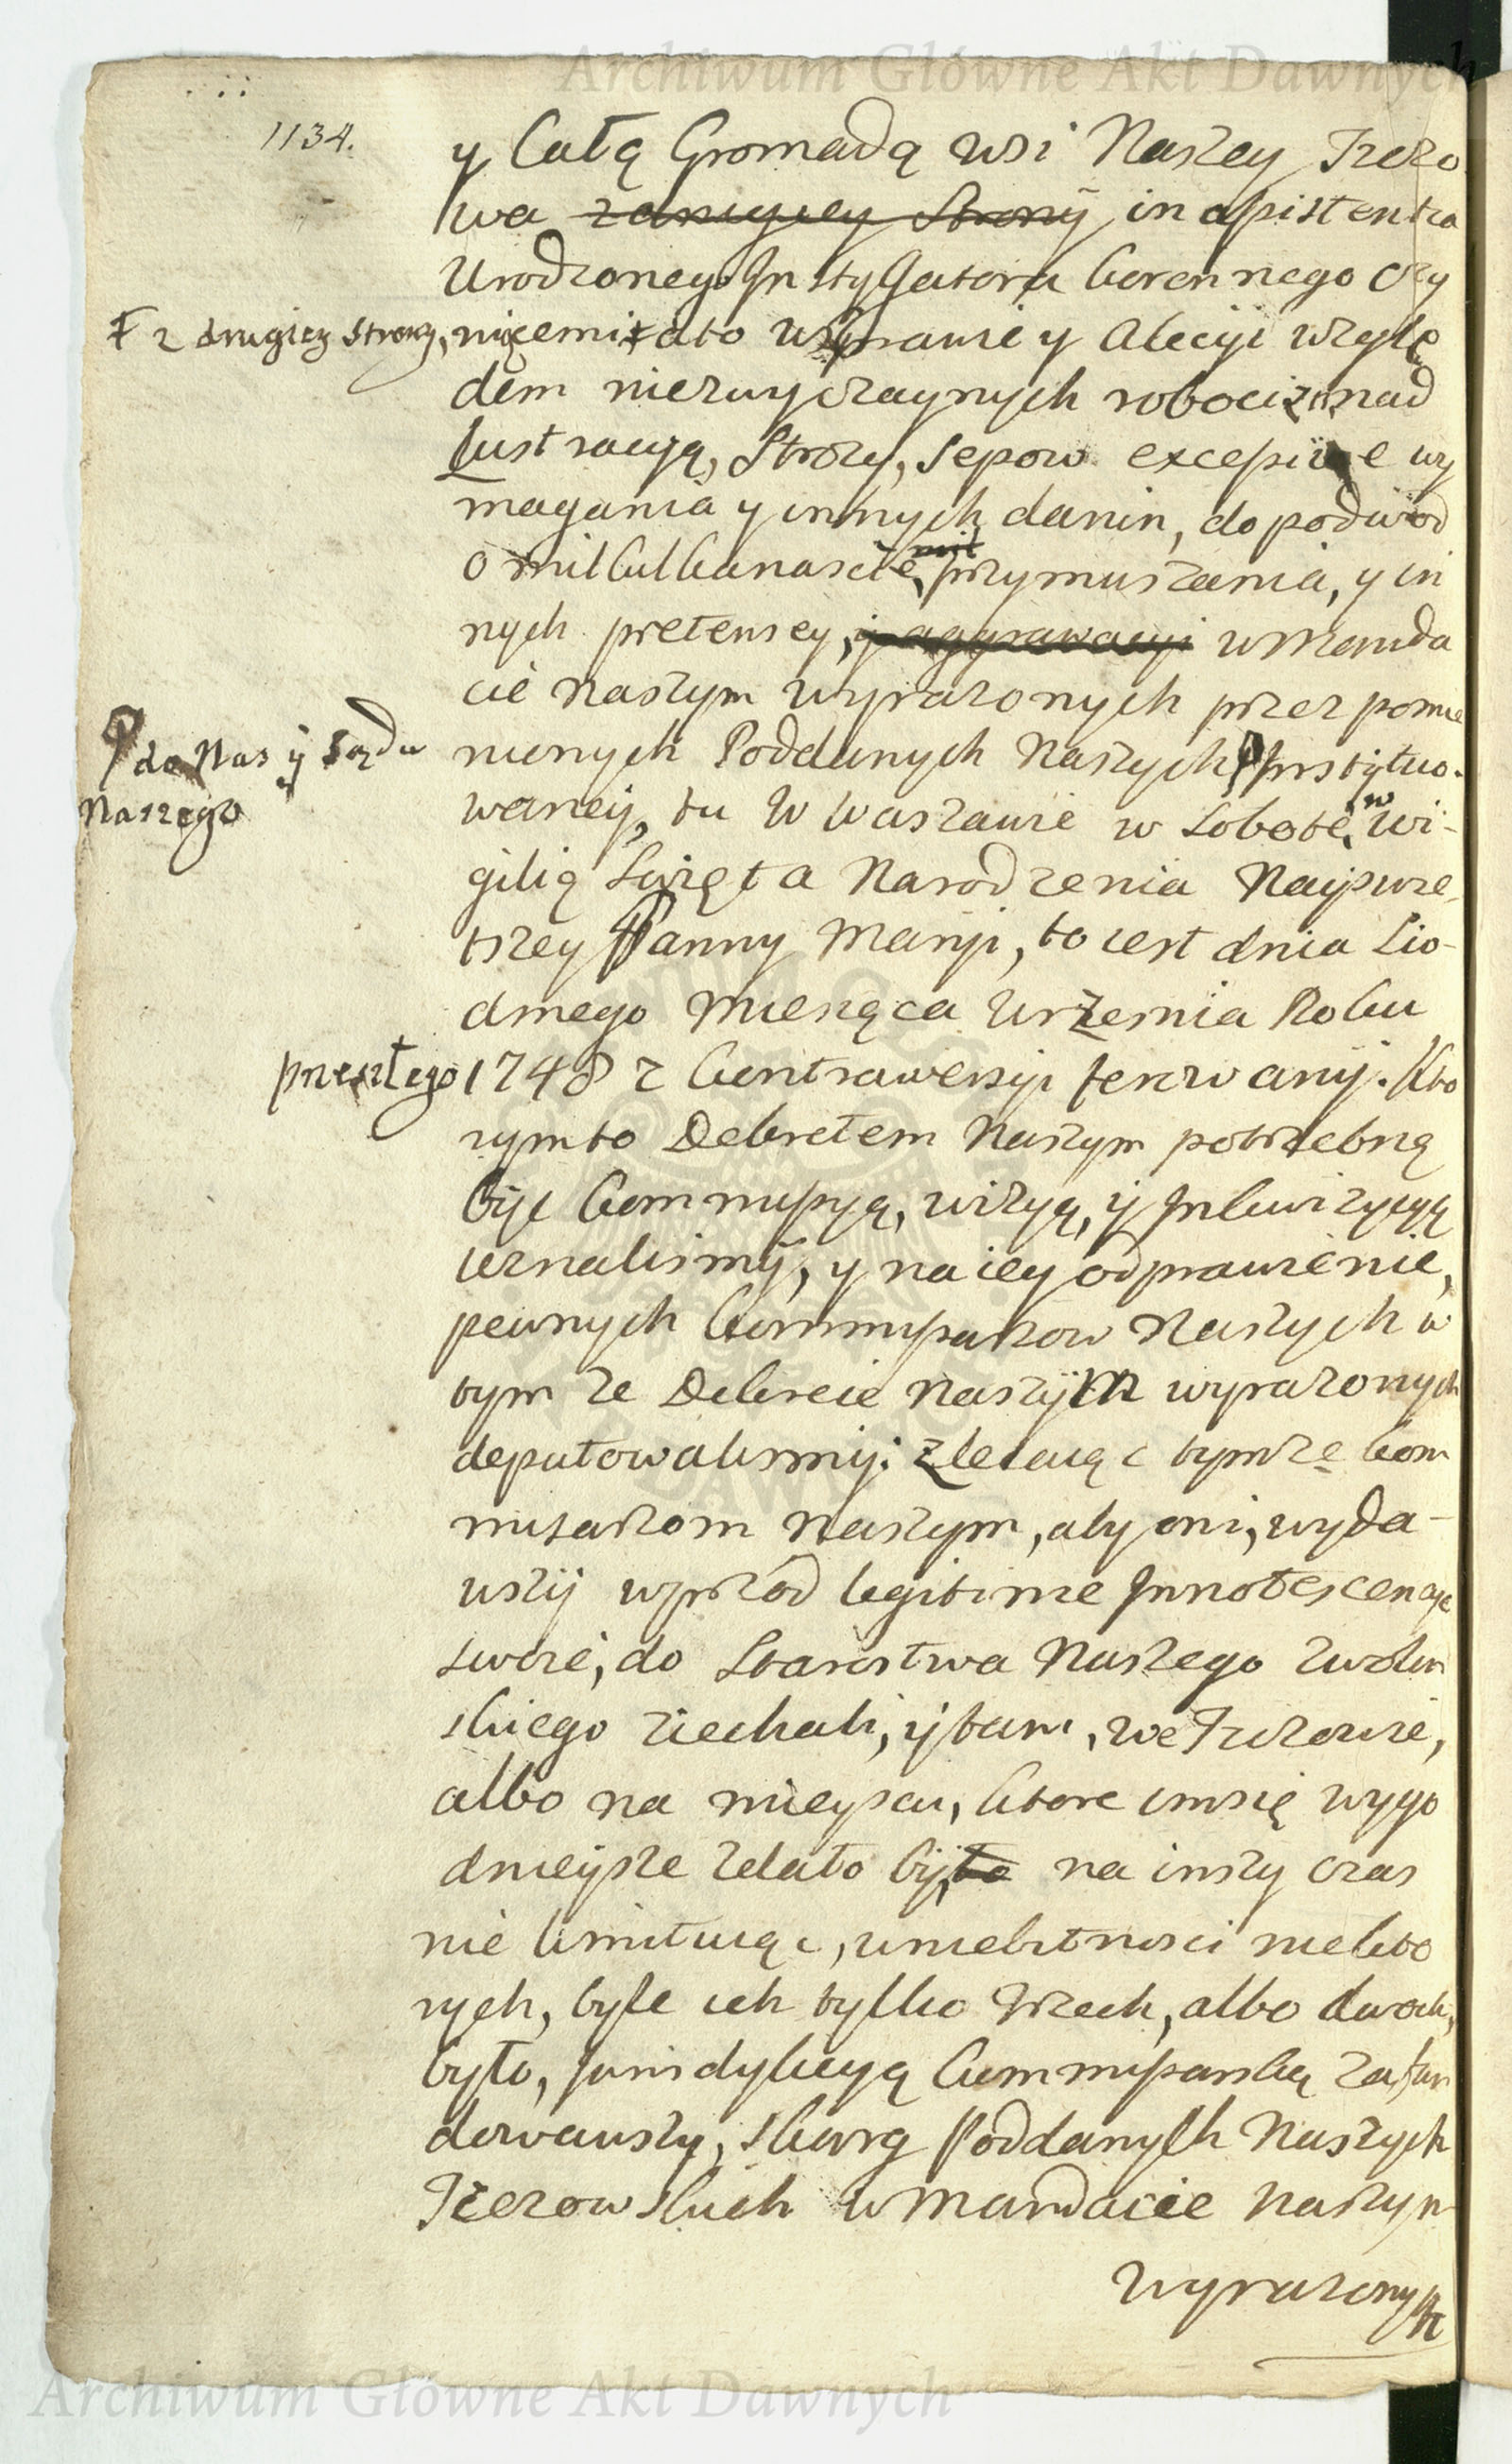 Archiwum Główne Akt Dawnych
1134.
y Całą Gromadą wsi Naszey Jrezo
wa z drugiey Strony in assistentia
Urodzonego Instygatora Coronnego czy
Ɨ z drugiey strony,
niącemi Ɨ a to w sprawie y Akcyi wzglę
dem niezwyczaynych robocizn nad
Lustracyą, Strozy, Sepow excessive wy
magania y innych danin, do podwod
o mil kilkanascie mil przymuszania, y in
nych pretensey, y aggrawacyi w Manda
cie Naszym wyrazonych przez pomie
do Nas y Sądu
Naszego
nionych Poddanych Naszych Instytuo-
waney, tu w Warszawie w Sobotę, w Wi-
gilią Swięta Narodzenia Nayswię
tszey Panny Maryi, to iest dnia Sio-
dmego Miesiąca Wrzesnia Roku
przeszłego
1748 z Controwersyi ferowany. Kto
rymto Dekretem Naszym potrzebną
być Commissyą, wizyą, y Inkwizycyą
uznalismy, y na iey odprawienie,
pewnych Commissarzow Naszych w
tym ze Dekrecie Naszym wyrazonych
deputowalismy: zlecaiąc tymze Com
missarzom Naszym, aby oni, wyda-
wszy wprzod legitime Innotescencye
swoie, do Starostwa Naszego Zwolin
skiego ziechali, y tam, we Jrzowie,
albo na mieyscu, ktore im się wygo
dnieysze zdało być, to na inszy czas
nie limituiąc, w niebytnosci niekto
rych, byle ich tylko trzech, albo dwoch,
było, Jurisdykcyą Commissarską zafun
dowawszy, skarg Poddanych Naszych
Jrezowskich w Mandacie Naszym
wyrazonych
Archiwum Główne Akt Dawnych